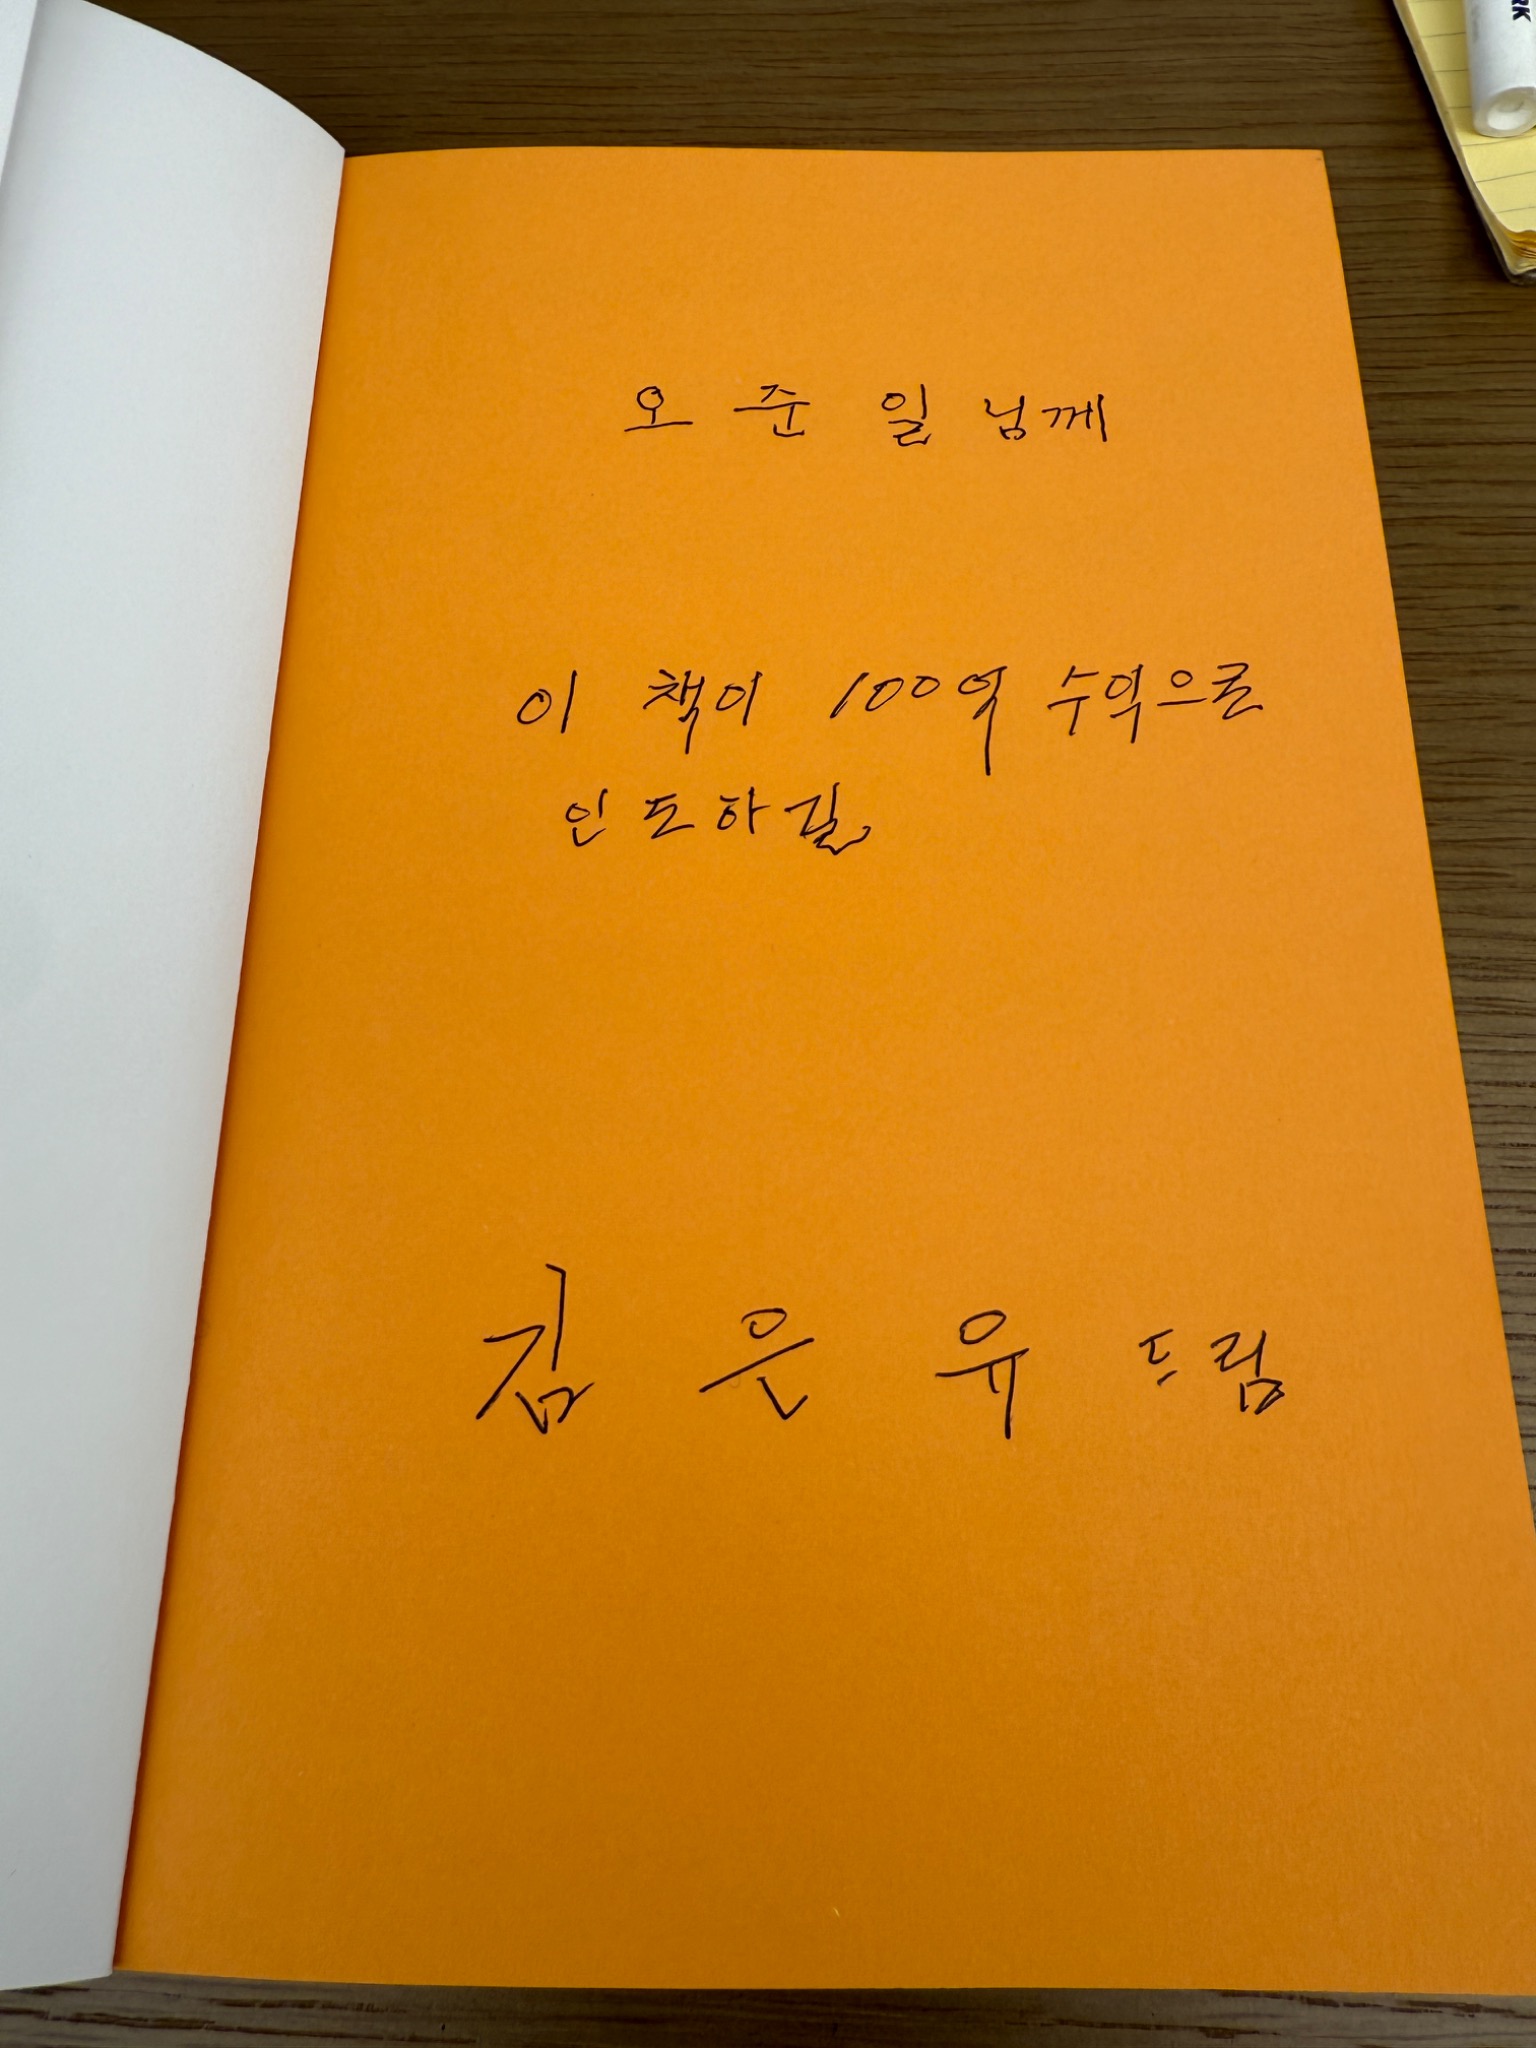 RK
오 준 일 님께
이 책이 100억 수익으로
인도하길
김 은 유 드림